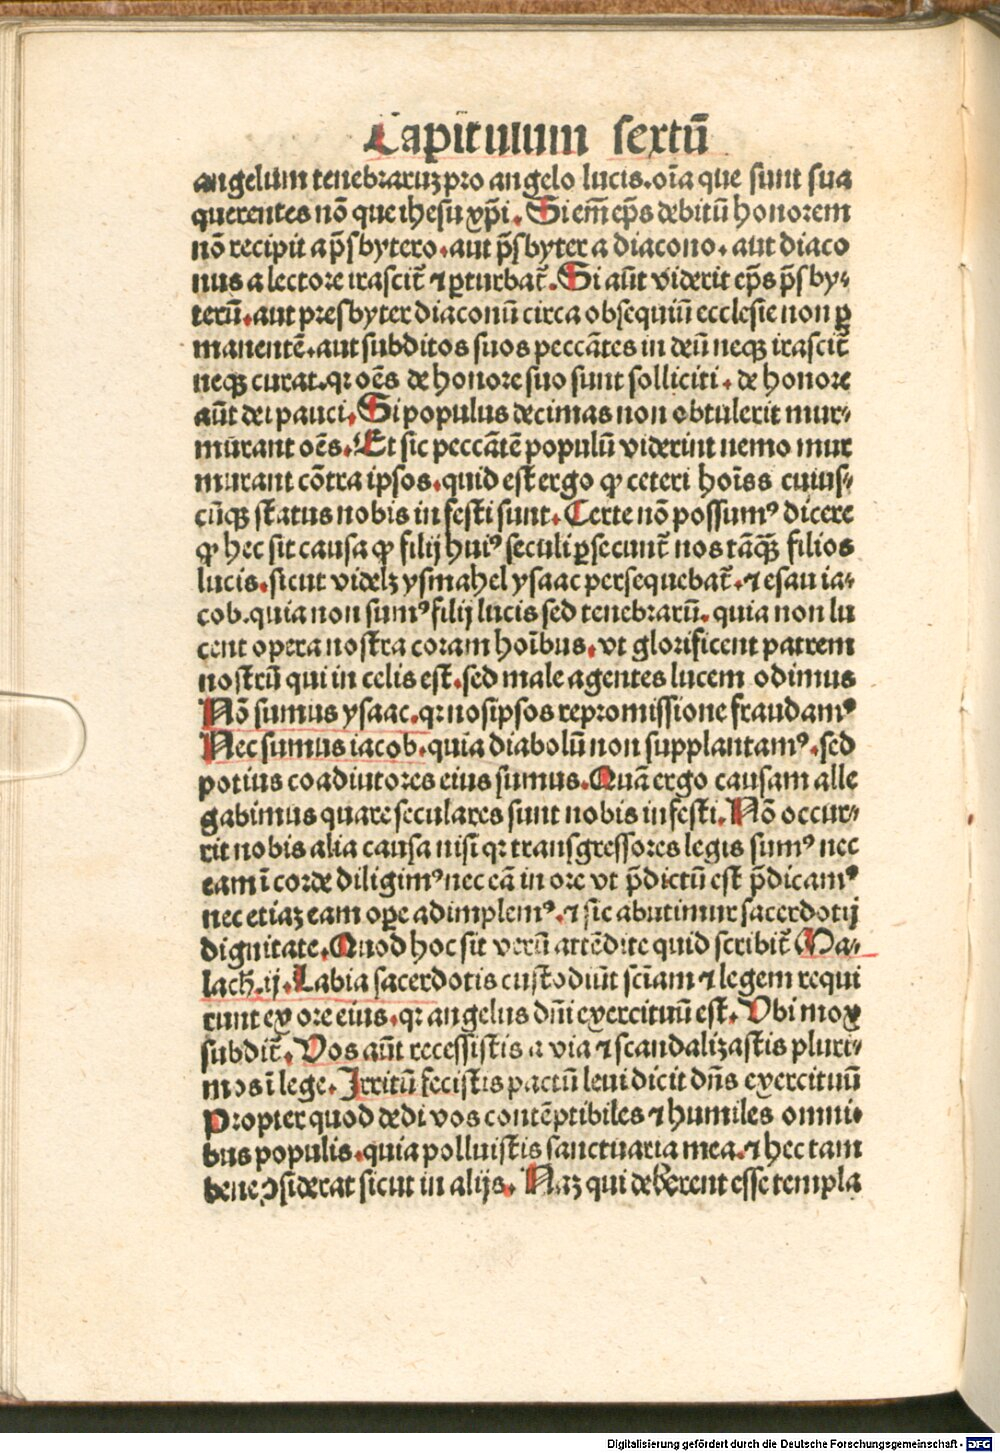 Capitulum sextū
angelum tenebraruꝫ pro angelo lucis. oīa que sunt sua
querentes nō que ihesu xp̄i. Si em̄ ep̄s debitū honorem
nō recipit a p̄sbytero. aut p̄sbyter a diacono. aut diaco
nus a lectore irascit̄ ⁊ ꝑturbat̄. Si aūt viderit ep̄s p̄sby⸗
terū. aut presbyter diaconū circa obsequiū ecclesie non ꝑ
manentē. aut subditos suos peccātes in deū neqꝫ irascit̄
neqꝫ curat. qꝛ oēs de honore suo sunt solliciti. de honore
aūt dei pauci. Si populus decimas non obtulerit mur⸗
murant oēs. Et sic peccātē populū viderint nemo mur
murant cōtra ipsos. quid est ergo ꝙ ceteri hoīss cuius⸗
cūqꝫ status nobis infesti sunt. Certe nō possumꝰ dicere
ꝙ hec sit causa ꝙ filij huiꝰ seculi ꝑsecunt̄ nos tāqꝫ̄ filios
lucis. sicut videlꝫ ysmahel ysaac persequebat̄. ⁊ esau ia⸗
cob. quia non sumꝰ filij lucis sed tenebrarū. quia non lu
cent opera nostra coram hoībus. vt glorificent patrem
nostrū qui in celis est. sed male agentes lucem odimus
Nō sumus ysaac. qꝛ nosipsos repromissione fraudamꝰ
Nec sumus iacob. quia diabolū non supplantamꝰ. sed
potius coadiutores eius sumus. Quā ergo causam alle
gabimus quare seculares sunt nobis infesti. Nō occur⸗
rit nobis alia causa nisi qꝛ transgressores legis sumꝰ nec
eam ī corde diligimꝰ nec eā in ore vt p̄dictū est p̄dicamꝰ
nec etiaꝫ eam oꝑe adimplemꝰ. ⁊ sic abutimur sacerdotij
dignitate. Quod hoc sit verū attēdite quid scribit̄ Ma⸗
lach. ij. Labia sacerdotis custodiūt sciam̄ ⁊ legem requi
runt ex ore eius. qꝛ angelus dn̄i exercituū est. Vbi mox
subdit̄. Vos aūt recessistis a via ⁊ scandalizastis pluri⸗
mos ī lege. Irritū fecistis pactū leui dicit dn̄s exercituū
Propter quod dedi vos contēptibiles ⁊ humiles omni⸗
bus populis. quia polluistis sanctuaria mea. ⁊ hec tam
bene ꝯsiderat sicut in alijs. Naꝫ qui deberent esse templa
Digitalisierung gefördert durch die Deutsche Forschungsgemeinschaft - DFG